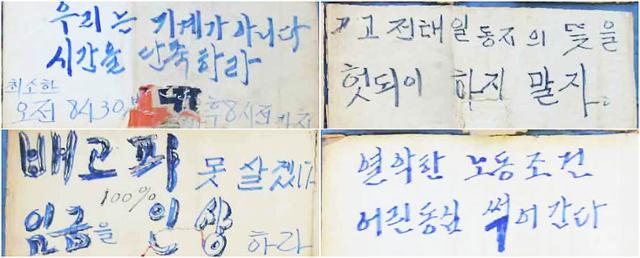 우리는 기계가 아니다
시간을 단축하라
최소한
오전 8시30분부터 오후8시전까지
고 전태일 동지의 뜻을
헛되이 하지 말자.
배고파 못 살겠다
100%
임금을 인상 하라
열악한 노동조건
어린동심 썩어간다